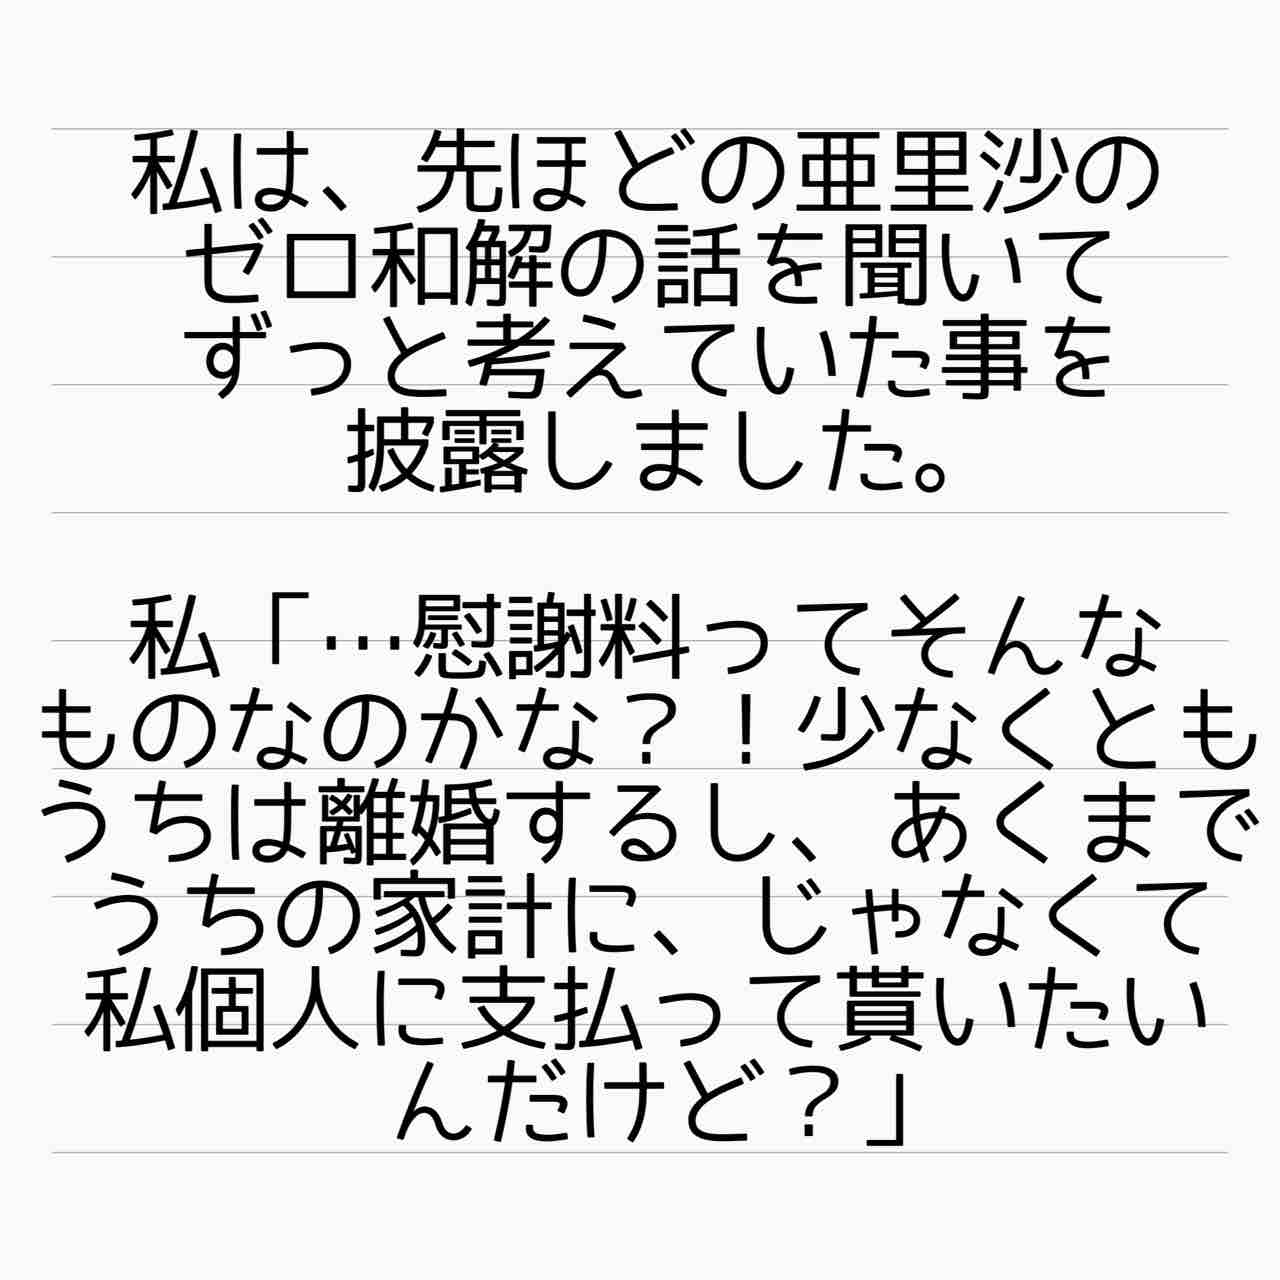 私は、先ほどの亜里沙の
ゼロ和解の話を聞いて
ずっと考えていた事を
披露しました。
私「…慰謝料ってそんな
ものなのかな？！少なくとも
うちは離婚するし、あくまで
うちの家計に、じゃなくて
私個人に支払って貰いたい
んだけど？」